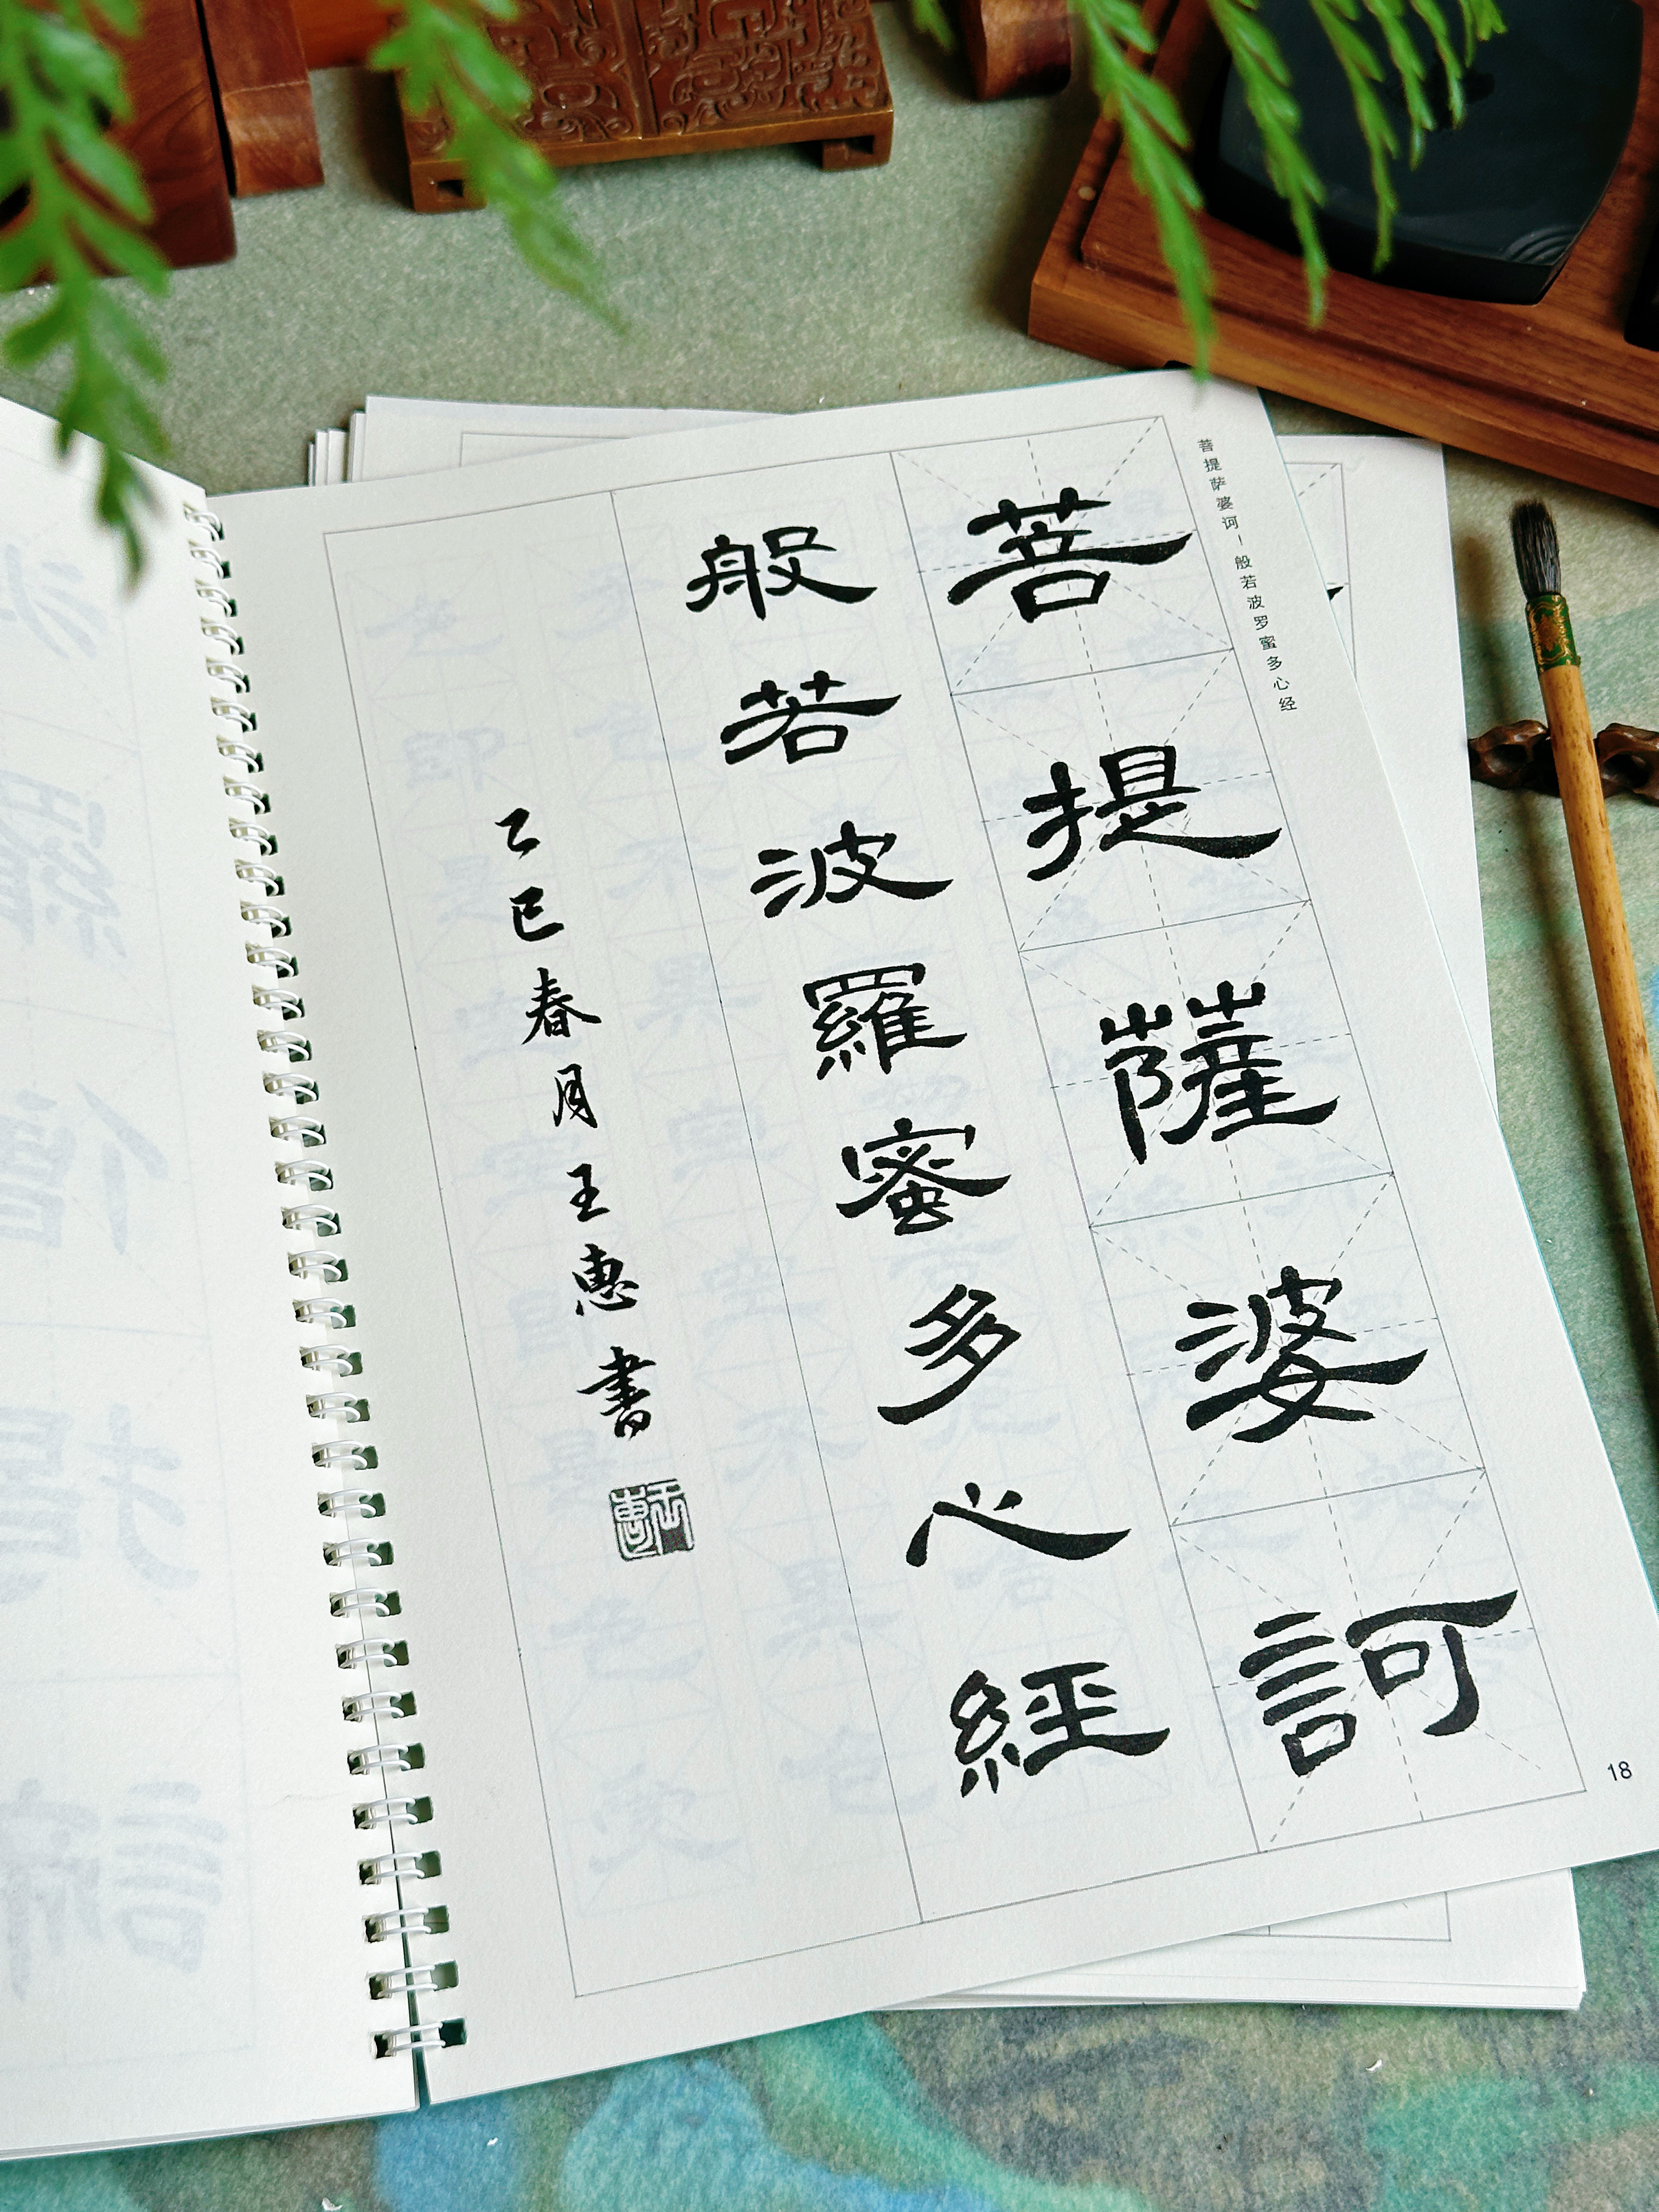 菩提萨婆诃－般若波罗蜜多心经
菩提薩婆訶
般若波羅蜜多心經
乙巳春月王惠書
王惠
18